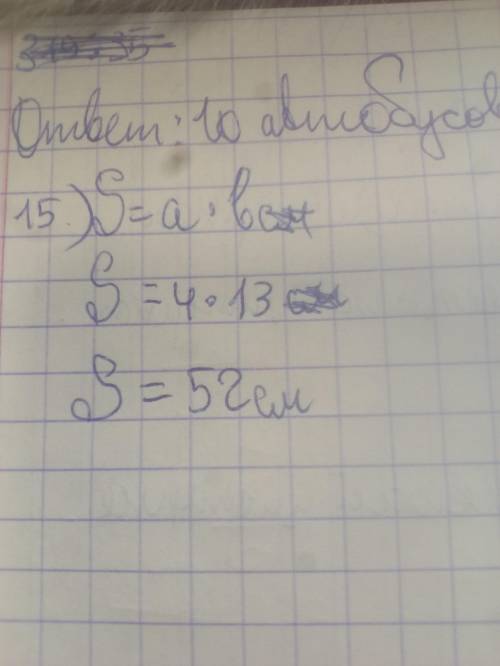 Ответ: 10 автобусов
15.) S = a · в
S = 4 · 13
S = 52 см